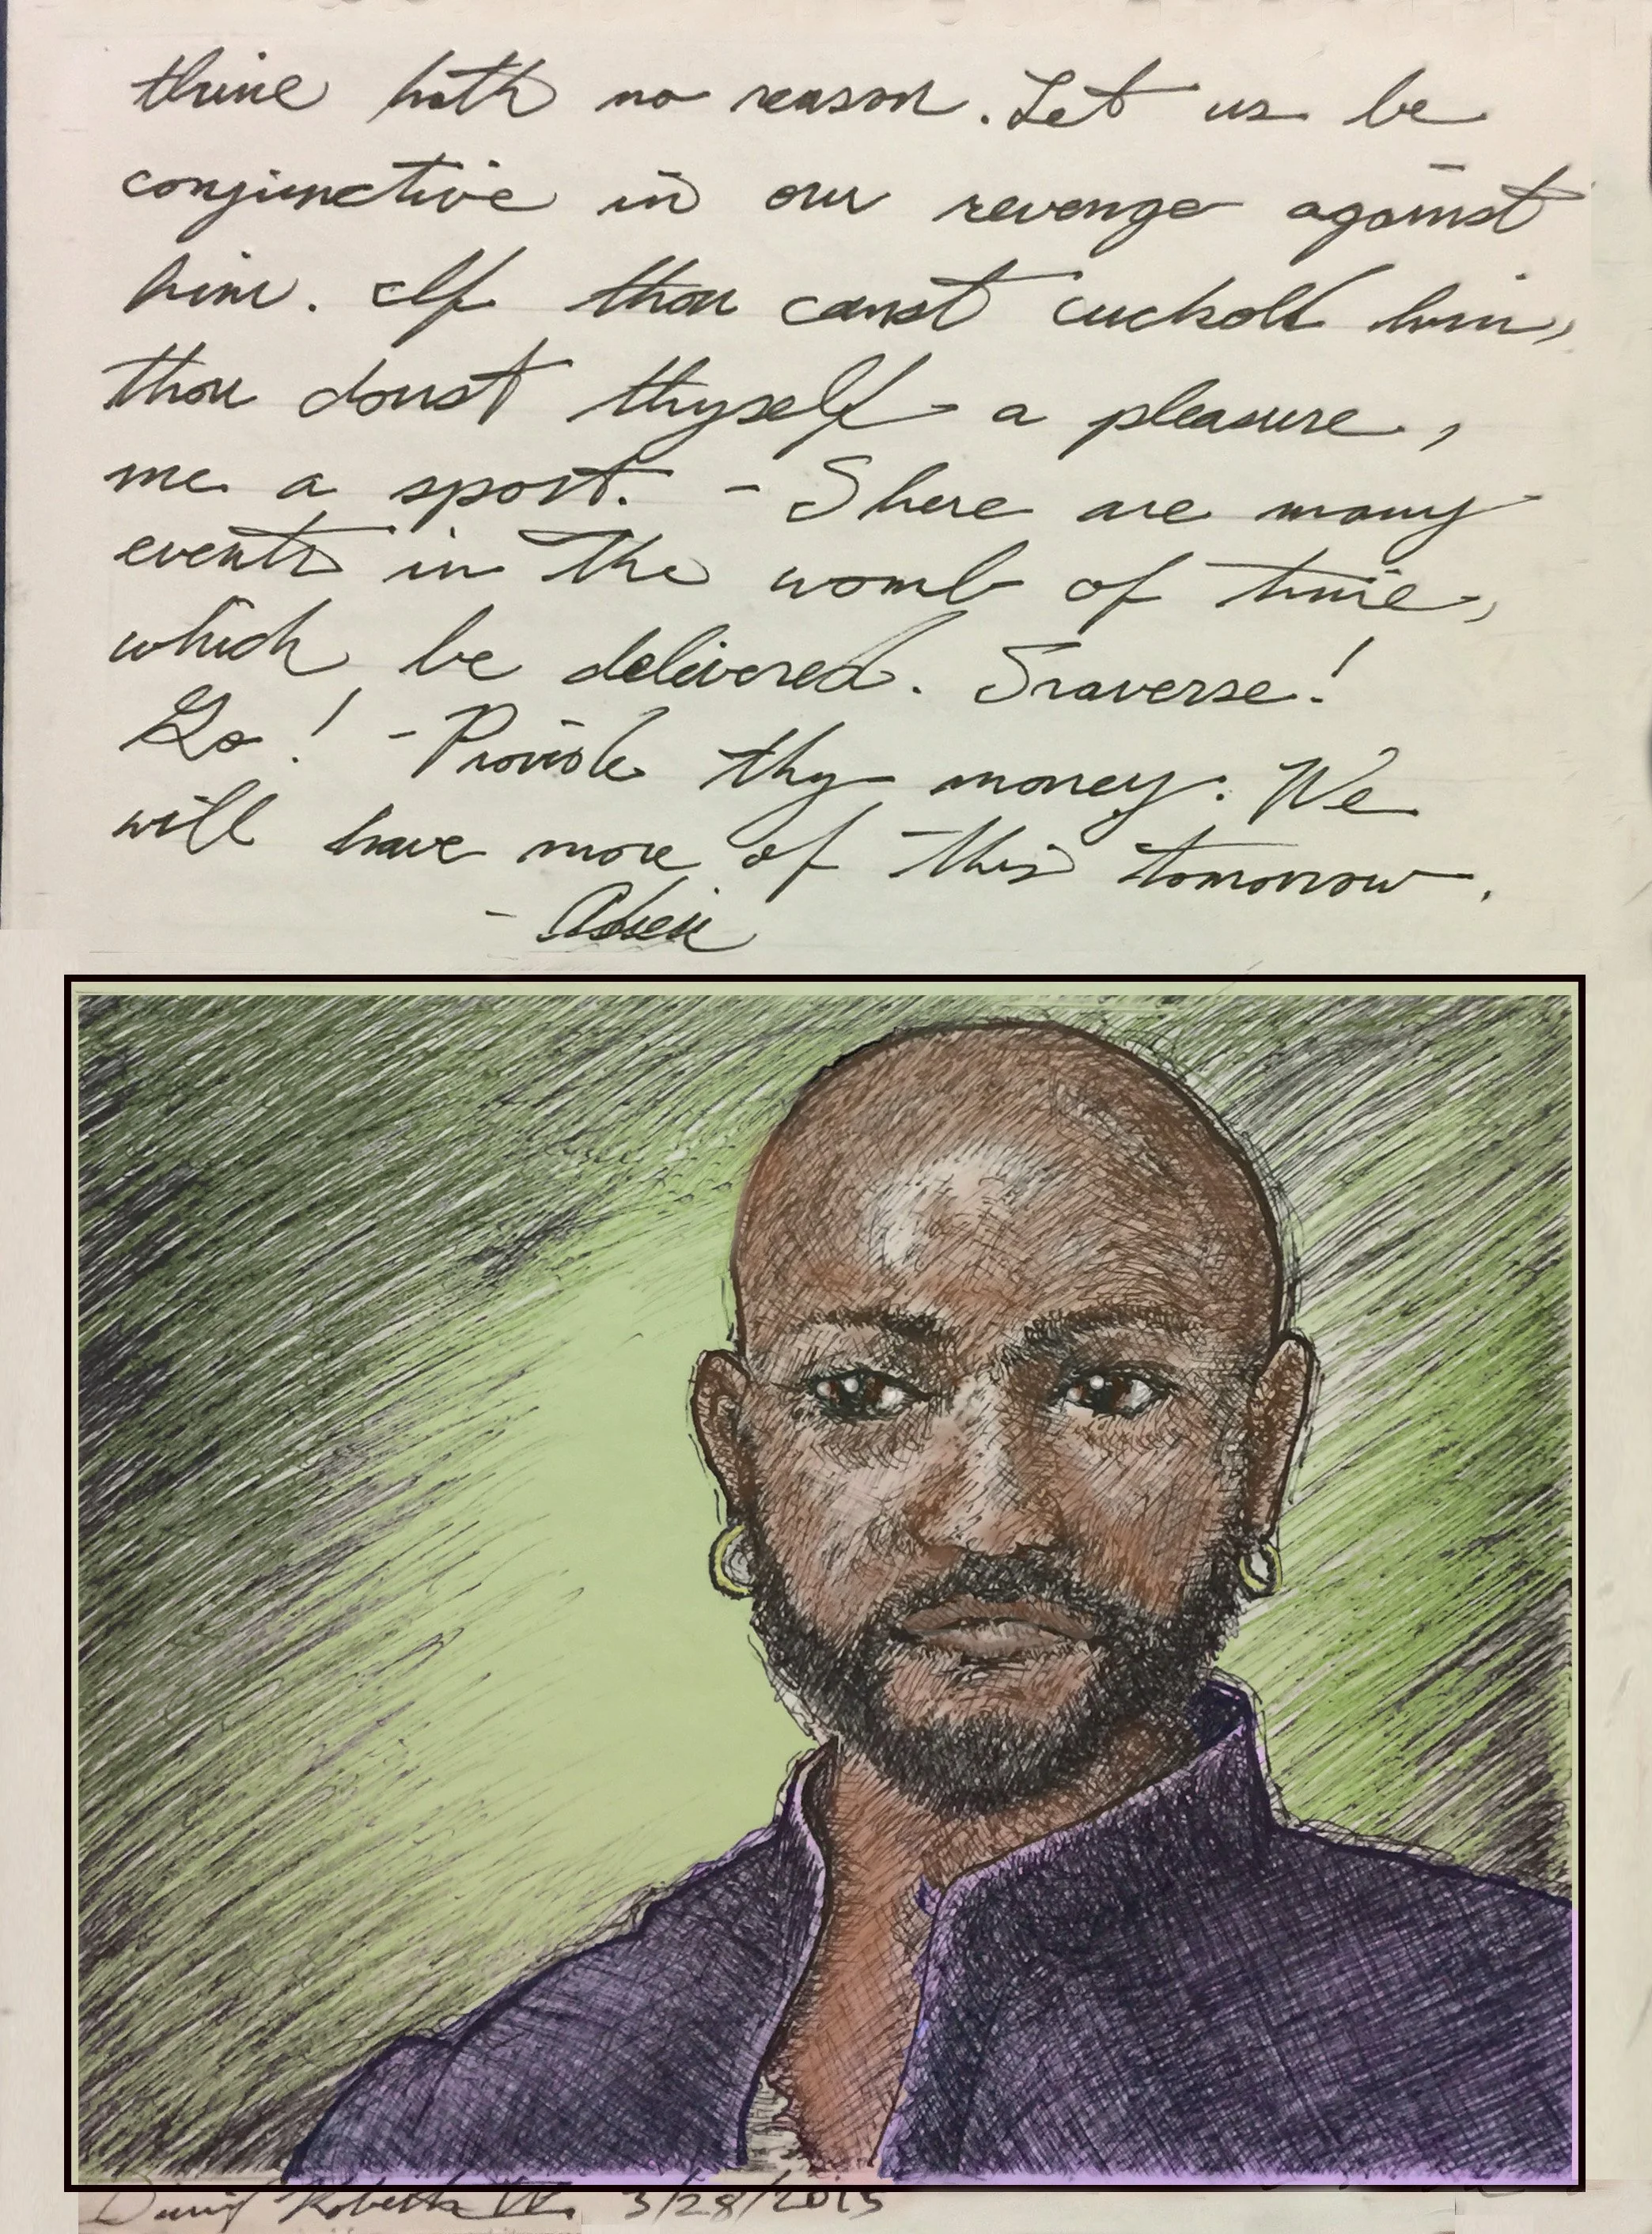 thine hath no reason. Let us be
conjunctive in our revenge against
him. If thou canst cuckold him,
thou doust thyself a pleasure,
me a sport. - There are many
events in the womb of time,
which be delivered. Traverse!
Go! - Provide thy money. We
will have more of this tomorrow.
- Adieu
David Roberts IV 3/28/2015